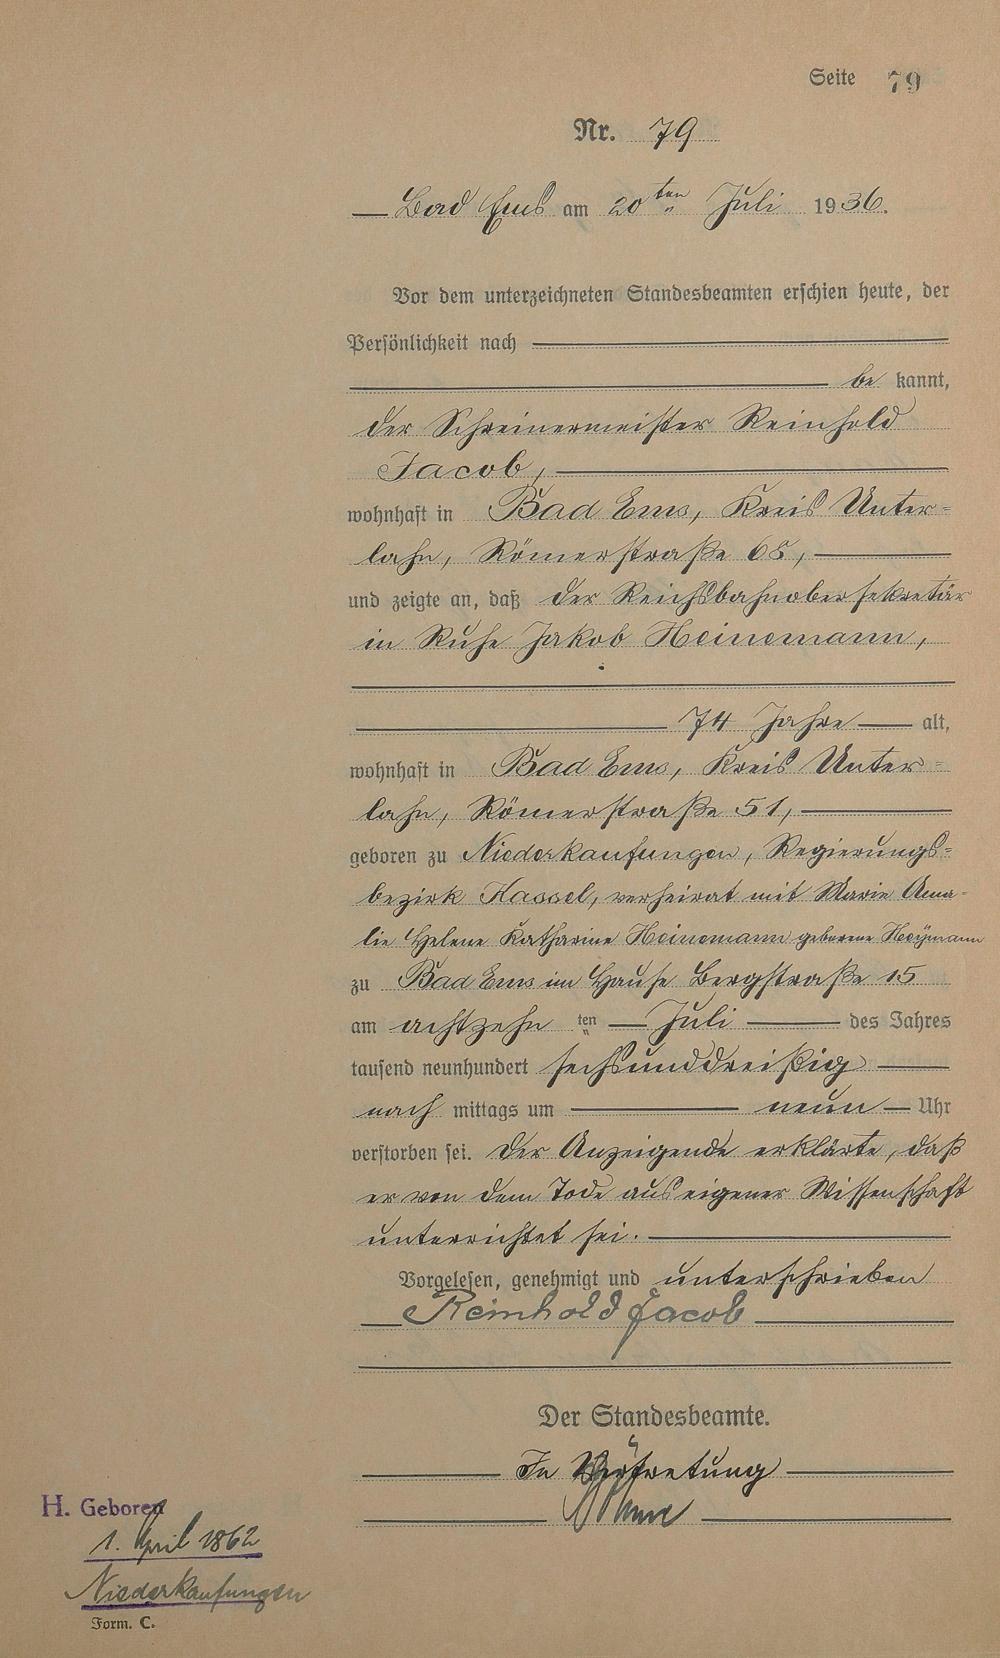 Seite 79
Nr. 79
Bad Ems am 20 ten Juli 1936.
Vor dem unterzeichneten Standesbeamten erschien heute, der
Persönlichkeit nach
be kannt,
der Schreinermeister Reinhold
Jacob,
wohnhaft in Bad Ems, Kreis Unter=
lahn, Römerstraße 68,
und zeigte an, daß der Reichsbahnobersekretär
in Ruhe Jakob Heinemann,
74 Jahre alt,
wohnhaft in Bad Ems, Kreis Unter=
lahn, Römerstraße 51,
geboren zu Niederkaufungen, Regierungs=
bezirk Kassel, verheirat mit Marie Ama-
lie Helene Katharine Heinemann geborene Heymann
zu Bad Ems im Hause Bergstraße 15
am achtzehn ten Juli des Jahres
tausend neunhundert sechsunddreißig
nach mittags um neun Uhr
verstorben sei. Der Anzeigende erklärte, daß
er von dem Tode aus eigener Wissenschaft
unterrichtet sei.
Vorgelesen, genehmigt und unterschrieben
Reinhold Jacob
Der Standesbeamte.
In Vertretung
H. Geboren
1. April 1862
Niederkaufungen
Form. C.